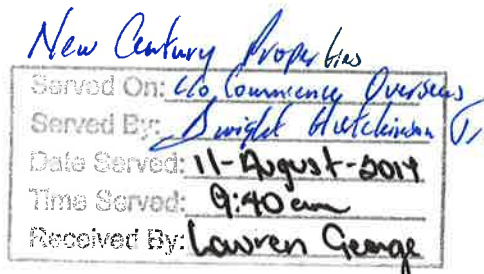 New Century Properties
Served On: c/o Commence Overseas
Served By: Dwight Hutchinson
Date Served: 11-August-2014
Time Served: 9:40 am
Received By: Lauren George